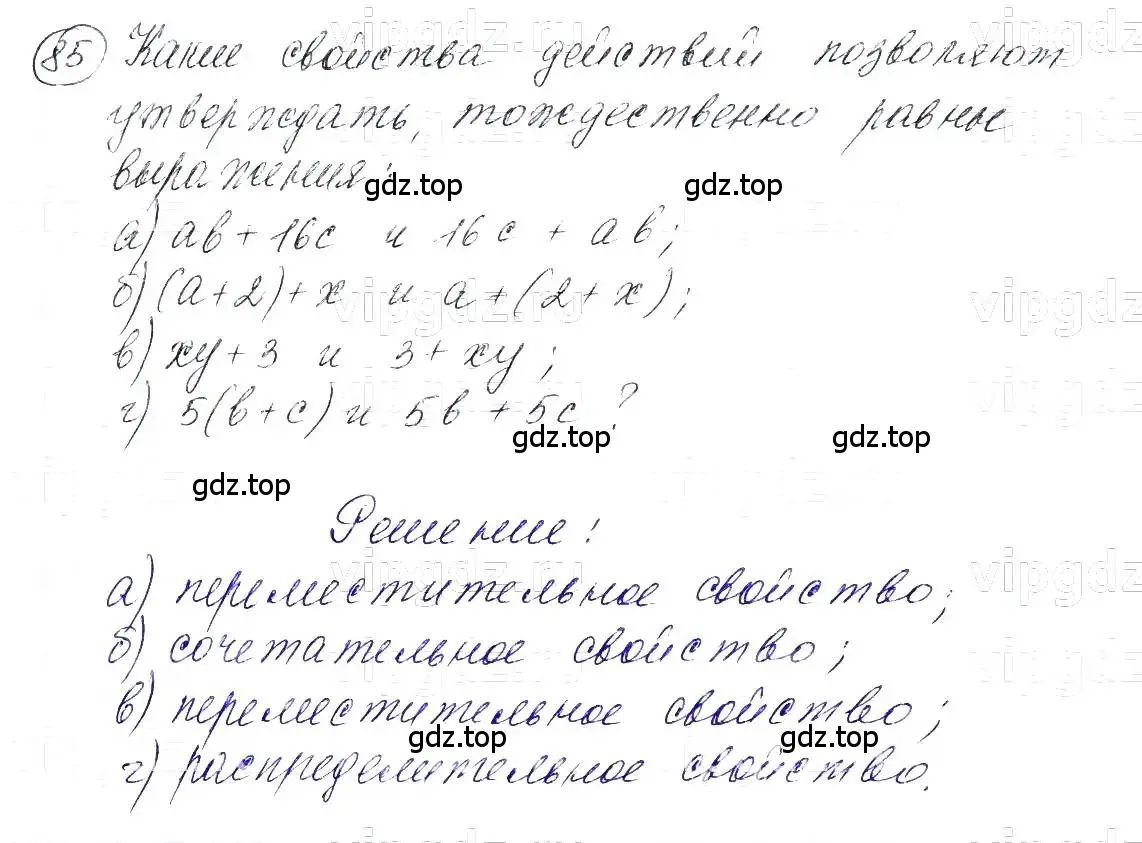 85 Какие свойства действий позволяют
утверждать, тождественно равны
выражения:
gdz.top gdz.top
а) ab + 16c и 16c + ab;
б) (a+2)+x и a+(2+x);
в) xy+3 и 3+xy;
г) 5(b+c) и 5b + 5c ?
gdz.top gdz.top
gdz.top
Решение:
а) переместительное свойство;
б) сочетательное свойство;
в) переместительное свойство;
gdz.top gdz.top
г) распределительное свойство.
vipgdz.ru